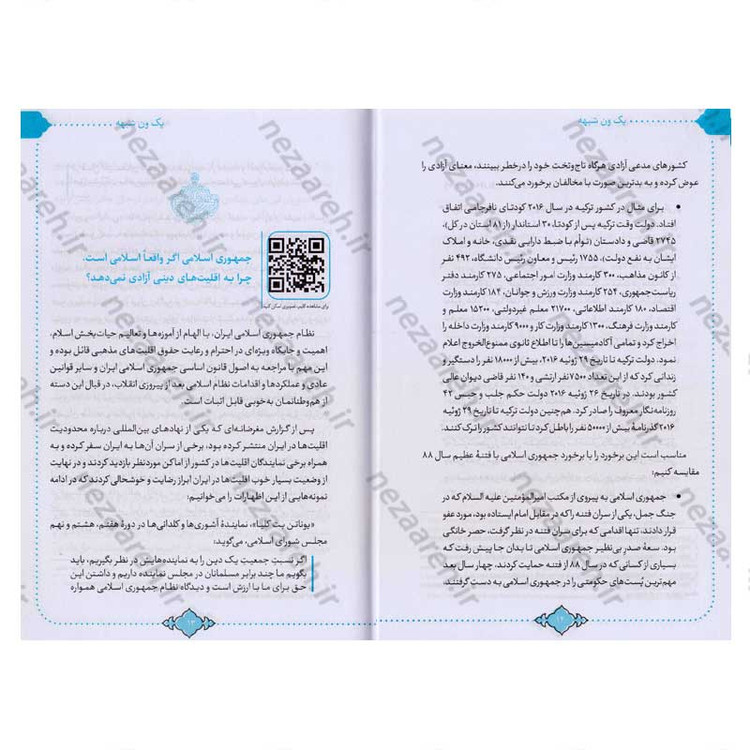 یک ون شبهه
کشورهای مدعی آزادی هرگاه تاج‌وتخت خود را درخطر ببینند، معنای آزادی را
عوض کرده و به بدترین صورت با مخالفان برخورد می‌کنند.
• برای مثال در کشور ترکیه در سال ۲۰۱۶ کودتای نافرجامی اتفاق
افتاد. دولت وقت ترکیه پس از کودتا، ۳۰ استاندار (از ۸۱ استان در کل)،
۲۷۴۵ قاضی و دادستان (توأم با ضبط دارایی نقدی، خانه و املاک
ایشان به نفع دولت)، ۱۷۵۵ رئیس و معاون رئیس دانشگاه، ۴۹۲ نفر
از کانون مذاهب، ۳۰۰ کارمند وزارت امور اجتماعی، ۲۷۵ کارمند دفتر
ریاست‌جمهوری، ۲۵۴ کارمند وزارت ورزش و جوانان، ۱۸۴ کارمند وزارت
اقتصاد، ۱۸۰ کارمند اطلاعاتی، ۲۱۷۰۰ معلم غیردولتی، ۱۵۲۰۰ معلم و
کارمند وزارت فرهنگ، ۱۳۰۰ کارمند وزارت کار و ۹۰۰۰ کارمند وزارت داخله را
اخراج کرد و تمامی آکادمیسین‌ها را تا اطلاع ثانوی ممنوع‌الخروج اعلام
نمود. دولت ترکیه تا تاریخ ۲۹ ژوئیه ۲۰۱۶، بیش از ۱۸۰۰۰ نفر را دستگیر و
زندانی کرد که از این تعداد ۷۵۰۰ نفر ارتشی و ۱۴۰ نفر قاضی دیوان عالی
کشور بودند. در تاریخ ۲۶ ژوئیه ۲۰۱۶ دولت حکم جلب و حبس ۴۲
روزنامه‌نگار معروف را صادر کرد. هم‌چنین دولت ترکیه تا تاریخ ۲۹ ژوئیه
۲۰۱۶ گذرنامهٔ بیش از ۵۰۰۰۰ نفر را باطل کرد تا نتوانند کشور را ترک کنند.
مناسب است این برخورد را با برخورد جمهوری اسلامی با فتنهٔ عظیم سال ۸۸
مقایسه کنیم:
• جمهوری اسلامی به پیروی از مکتب امیرالمؤمنین علیه السلام که در
جنگ جمل، یکی از سران فتنه را که در مقابل امام ایستاده بود، مورد عفو
قرار دادند، تنها اقدامی که برای سران فتنه در نظر گرفت، حصر خانگی
بود. سعهٔ صدرِ بی‌نظیر جمهوری اسلامی تا بدان جا پیش رفت که
بسیاری از کسانی که در سال ۸۸ از فتنه حمایت کردند، چهار سال بعد
مهم‌ترین پُست‌های حکومتی را در جمهوری اسلامی به دست گرفتند.
۱۲
یک ون شبهه
جمهوری اسلامی اگر واقعاً اسلامی است،
چرا به اقلیت‌های دینی آزادی نمی‌دهد؟
برای مشاهده کلیپ تصویری اسکن کنید
نظام جمهوری اسلامی ایران، با الهام از آموزه‌ها و تعالیم حیات‌بخش اسلام،
اهمیت و جایگاه ویژه‌ای در احترام و رعایت حقوق اقلیت های مذهبی قائل بوده و
این مهم با مراجعه به اصول قانون اساسی جمهوری اسلامی ایران و سایر قوانین
عادی و عملکردها و اقدامات نظام اسلامی بعد از پیروزی انقلاب، در قبال این دسته
از هم‌وطنانمان به‌خوبی قابل اثبات است.
پس از گزارش مغرضانه‌ای که یکی از نهادهای بین‌المللی درباره محدودیت
اقلیت‌ها در ایران منتشر کرده بود، برخی از سران آن‌ها به ایران سفر کرده و به
همراه برخی نمایندگان اقلیت‌ها در کشور از اماکن موردنظر بازدید کردند و در نهایت
از وضعیت بسیار خوب اقلیت‌ها در ایران ابراز رضایت و خوشحالی کردند که در ادامه
نمونه‌هایی از این اظهارات را می‌خوانیم:
«یوناتن بت کلیا»، نمایندهٔ آشوری‌ها و کلدانی‌ها در دورهٔ هفتم، هشتم و نهم
مجلس شورای اسلامی، می‌گوید:
اگر نسبتِ جمعیتِ یک دین را به نماینده‌هایش در نظر بگیریم، باید
بگویم ما چند برابر مسلمانان در مجلس نماینده داریم و داشتن این
حق برای ما با ارزش است و دیدگاه نظام جمهوری اسلامی همواره
۱۳
nezaareh.ir